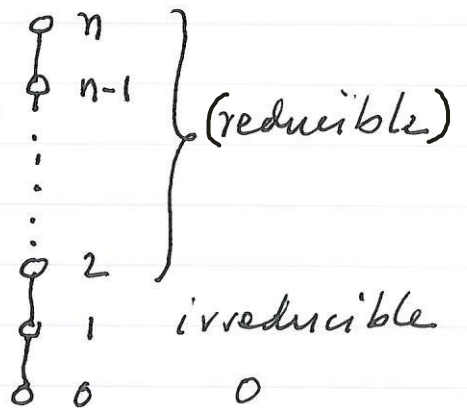 n
n-1
(reducible)
2
1 irreducible
0 0